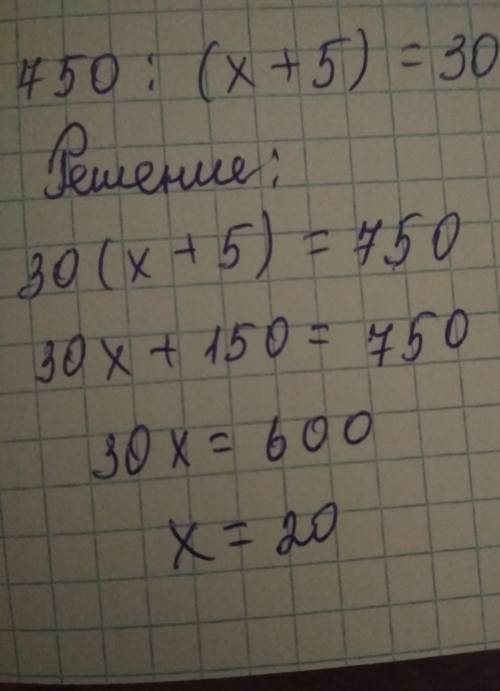 750 : (x + 5) = 30
Решение:
30(x + 5) = 750
30x + 150 = 750
30x = 600
x = 20